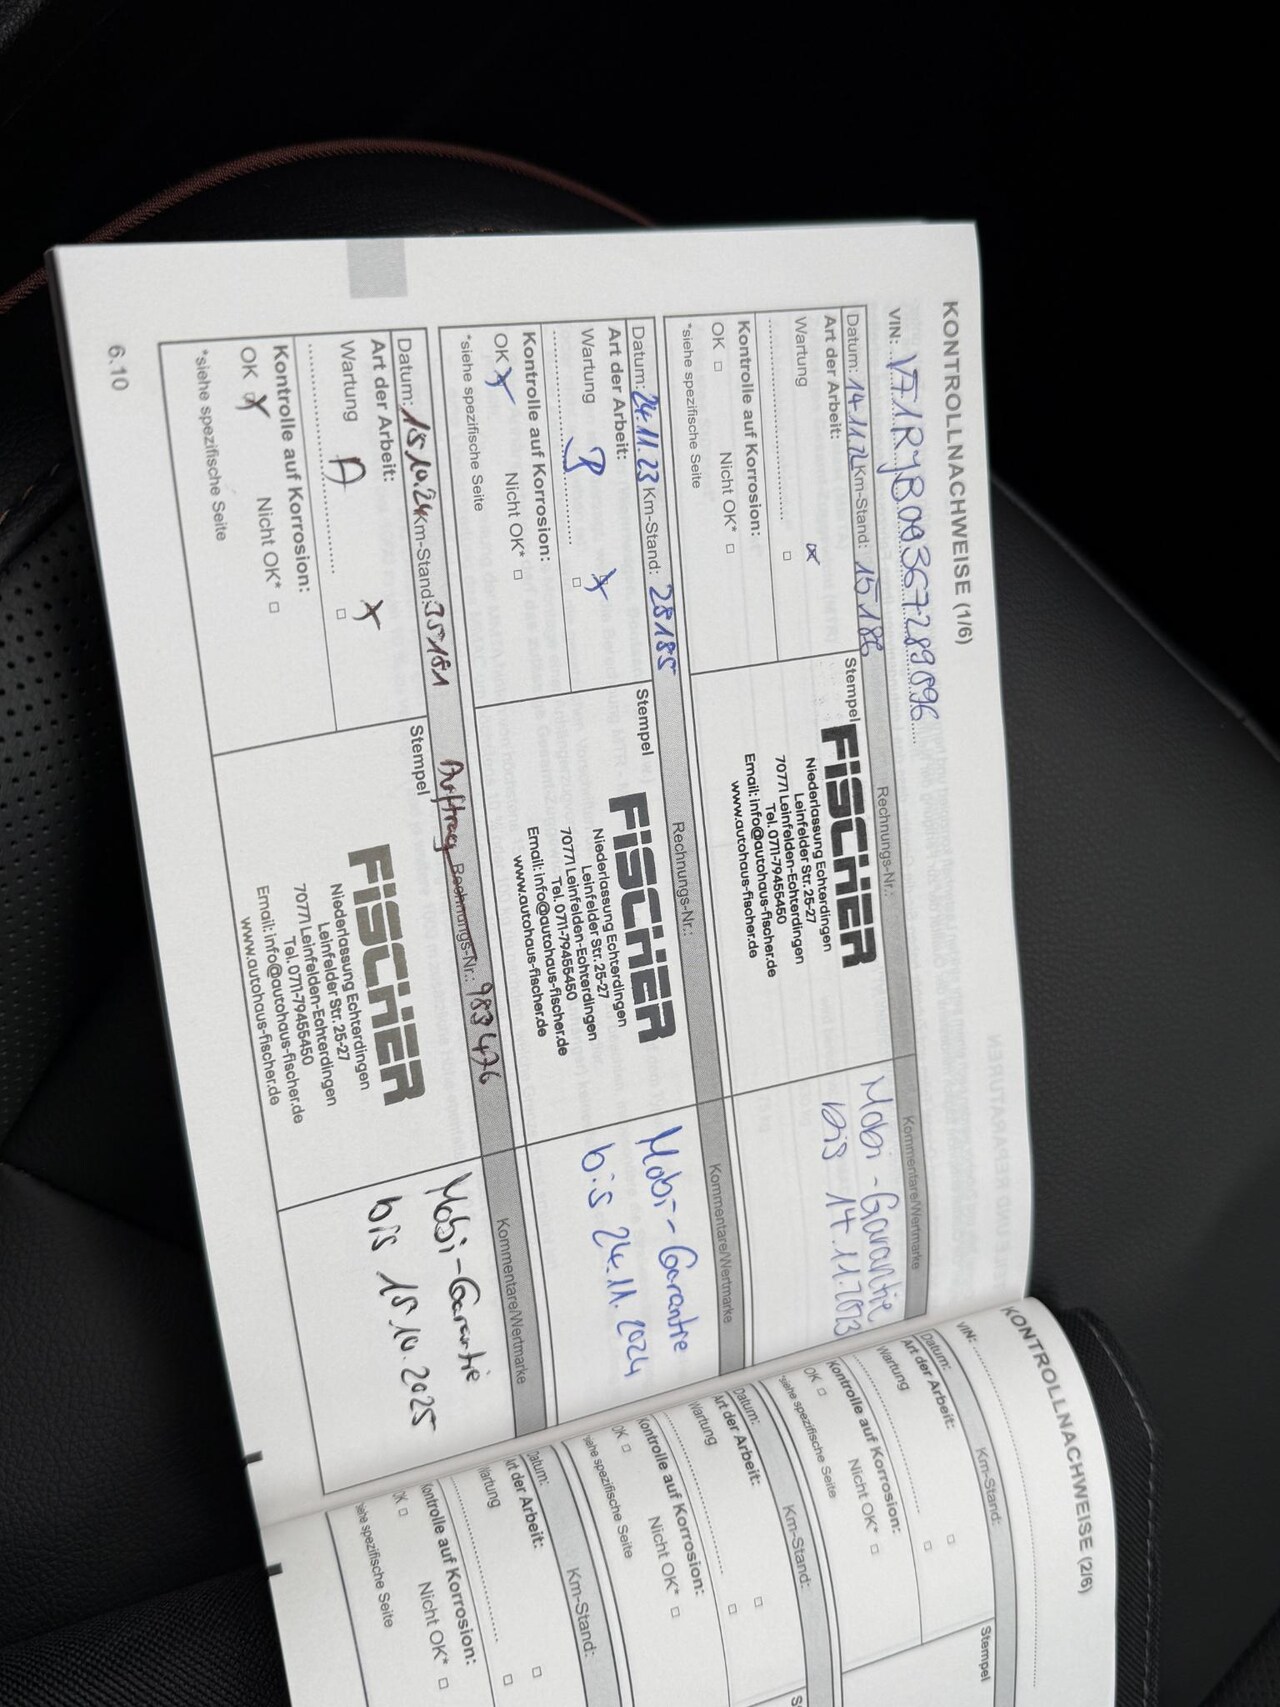 KONTROLLNACHWEISE (1/6)
VIN: VF1RYB00367289896
Datum: 14.11.22 Km-Stand: 15186 Rechnungs-Nr.: Kommentare/Wertmarke
Art der Arbeit:
Wartung
Kontrolle auf Korrosion:
OK Nicht OK*
*siehe spezifische Seite
Stempel
FISCHER
Niederlassung Echterdingen
Leinfelder Str. 25-27
70771 Leinfelden-Echterdingen
Tel. 0711-79455450
Email: info@autohaus-fischer.de
www.autohaus-fischer.de
Mobi-Garantie
bis 14.11.2023
Datum: 24.11.23 Km-Stand: 28185 Rechnungs-Nr.: Kommentare/Wertmarke
Art der Arbeit:
Wartung B
Kontrolle auf Korrosion:
OK Nicht OK*
*siehe spezifische Seite
Stempel
FISCHER
Niederlassung Echterdingen
Leinfelder Str. 25-27
70771 Leinfelden-Echterdingen
Tel. 0711-79455450
Email: info@autohaus-fischer.de
www.autohaus-fischer.de
Mobi-Garantie
bis 24.11.2024
Datum: 15.10.24 Km-Stand: 35181 Auftrag Rechnungs-Nr.: 983476 Kommentare/Wertmarke
Art der Arbeit:
Wartung A
Kontrolle auf Korrosion:
OK Nicht OK*
*siehe spezifische Seite
Stempel
FISCHER
Niederlassung Echterdingen
Leinfelder Str. 25-27
70771 Leinfelden-Echterdingen
Tel. 0711-79455450
Email: info@autohaus-fischer.de
www.autohaus-fischer.de
Mobi-Garantie
bis 15.10.2025
6.10
KONTROLLNACHWEISE (2/6)
VIN:
Datum: Km-Stand:
Art der Arbeit:
Wartung
Kontrolle auf Korrosion:
OK Nicht OK*
*siehe spezifische Seite
Stempel
Datum: Km-Stand:
Art der Arbeit:
Wartung
Kontrolle auf Korrosion:
OK Nicht OK*
siehe spezifische Seite
Datum: Km-Stand:
Art der Arbeit:
Wartung
Kontrolle auf Korrosion:
OK Nicht OK*
siehe spezifische Seite